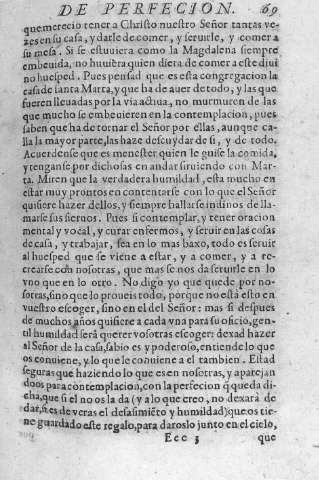 DE PERFECION. 69
que merecio tener a Christo nuestro Señor tantas ve-
zes en su casa, y darle de comer, y seruirle, y comer a
su mesa. Si se estuuiera como la Magdalena siempre
embeuida, no huuiera quien diera de comer a este diui
no huesped. Pues pensad que es esta congregacion la
casa de santa Marta, y que ha de auer de todo, y las que
fueren lleuadas por la via actiua, no murmuren de las
que mucho se embeuieren en la contemplacion, pues
saben que ha de tornar el Señor por ellas, aunque ca-
lla la mayor parte, las haze descuydar de si, y de todo.
Acuerdense que es menester quien le guise la comida,
y tenganse por dichosas en andar siruiendo con Mar-
ta. Miren que la verdadera humildad, esta mucho en
estar muy prontos en contentarse con lo que el Señor
quisiere hazer dellos, y siempre hallarse indinos de lla-
marse sus siernos. Pues si contemplar, y tener oracion
mental y vocal, y curar enfermos, y seruir en las cosas
de casa, y trabajar, sea en lo mas baxo, todo es seruir
al huesped que se viene a estar, y a comer, y a re-
crearse con nosotras, que mas se nos da seruirle en lo
vno que en lo otro. No digo yo que quede por no-
sotras, sino que lo proueis todo, porque no està esto en
vuestro escoger, sino en el del Señor: mas si despues
de muchos años quisiere a cada vna para su oficio, gen-
til humildad serà querer vosotras escoger: dexad hazer
al Señor de la casa, sabio es y poderoso, entiende lo que
os conuiene, y lo que le conuiene a el tambien. Estad
seguras que haziendo lo que es en nosotras, y aparejan
doos para contemplacion, con la perfecion q̃ queda di-
cha, que si el no os la da (y a lo que creo, no dexarà de
dar, si es de veras el desasimiẽto y humildad) que os tie-
ne guardado este regalo, para daroslo junto en el cielo,
Eee 3 que